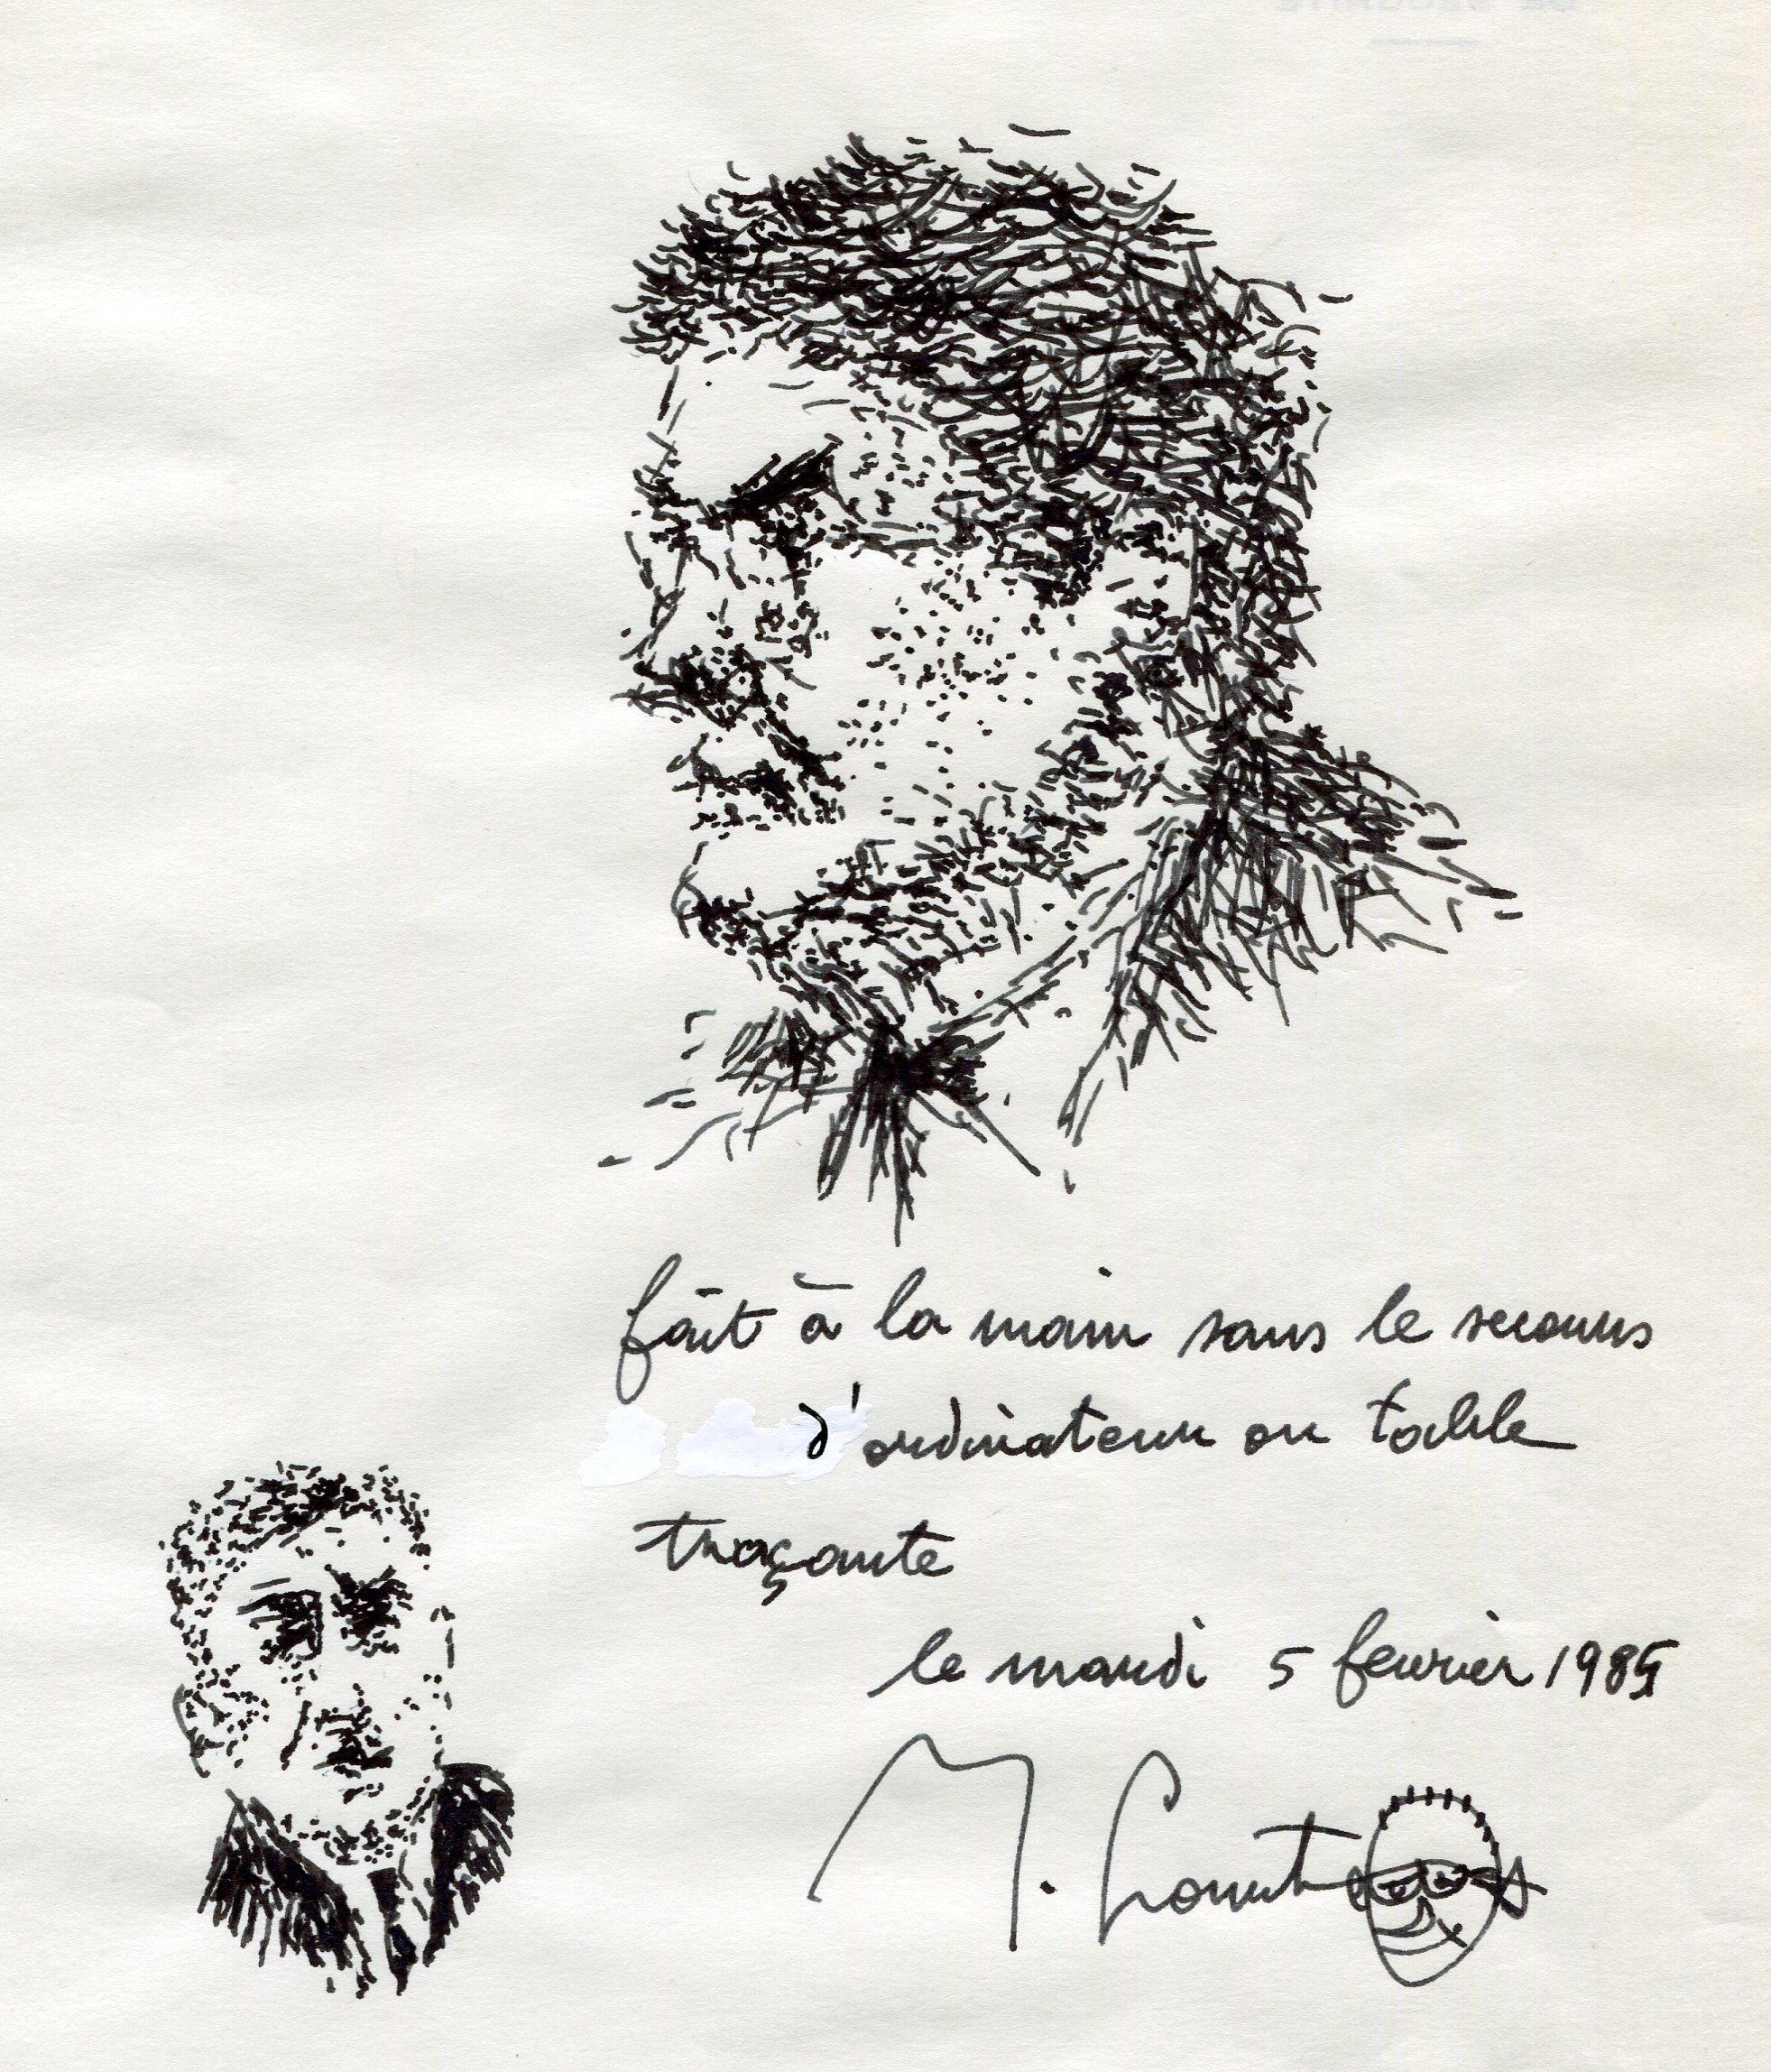 fait à la main sans le secours
d'ordinateur ou table
traçante
le mardi 5 fevrier 1985
M.